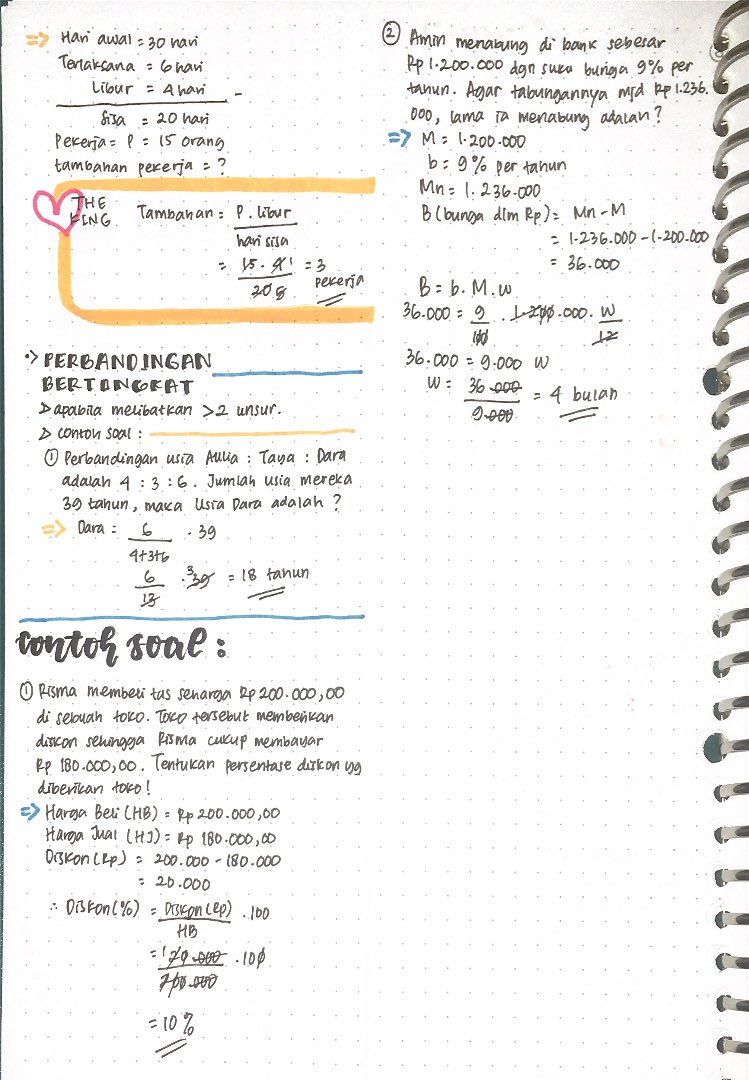 ⇒ Hari awal = 30 hari
Terlaksana = 6 hari
Libur = 4 hari -
Sisa = 20 hari
Pekerja = P = 15 orang
tambahan pekerja = ?
THE KING
Tambahan = P. libur / hari sisa
= 15 . 4 1 / 20 5 = 3 pekerja
PERBANDINGAN
BERTINGKAT
▷ apabila melibatkan >2 unsur.
▷ contoh soal :
① Perbandingan usia Aulia : Taya : Dara
adalah 4 : 3 : 6. Jumlah usia mereka
39 tahun, maka usia Dara adalah ?
⇒ Dara = 6 / 4+3+6 . 39
6 / 13 . 3 39 = 18 tahun
contoh soal :
① Risma membeli tas seharga Rp 200.000,00
di sebuah toko. Toko tersebut memberikan
diskon sehingga Risma cukup membayar
Rp 180.000,00. Tentukan persentase diskon yg
diberikan toko!
⇒ Harga Beli (HB) = Rp 200.000,00
Harga Jual (HJ) = Rp 180.000,00
Diskon (Rp) = 200.000 - 180.000
= 20.000
∴ Diskon (%) = Diskon (Rp) / HB . 100
= 1 20.000 / 200.000 . 100
= 10 %
② Amin menabung di bank sebesar
Rp 1.200.000 dgn suku bunga 9% per
tahun. Agar tabungannya mjd Rp 1.236.
000, lama ia menabung adalah ?
⇒ M = 1.200.000
b = 9% per tahun
Mn = 1.236.000
B (bunga dlm Rp) = Mn - M
= 1.236.000 - 1.200.000
= 36.000
B = b. M. w
36.000 = 9 / 100 . 1.200.000 . W / 12
36.000 = 9.000 W
W = 36.000 / 9.000 = 4 bulan